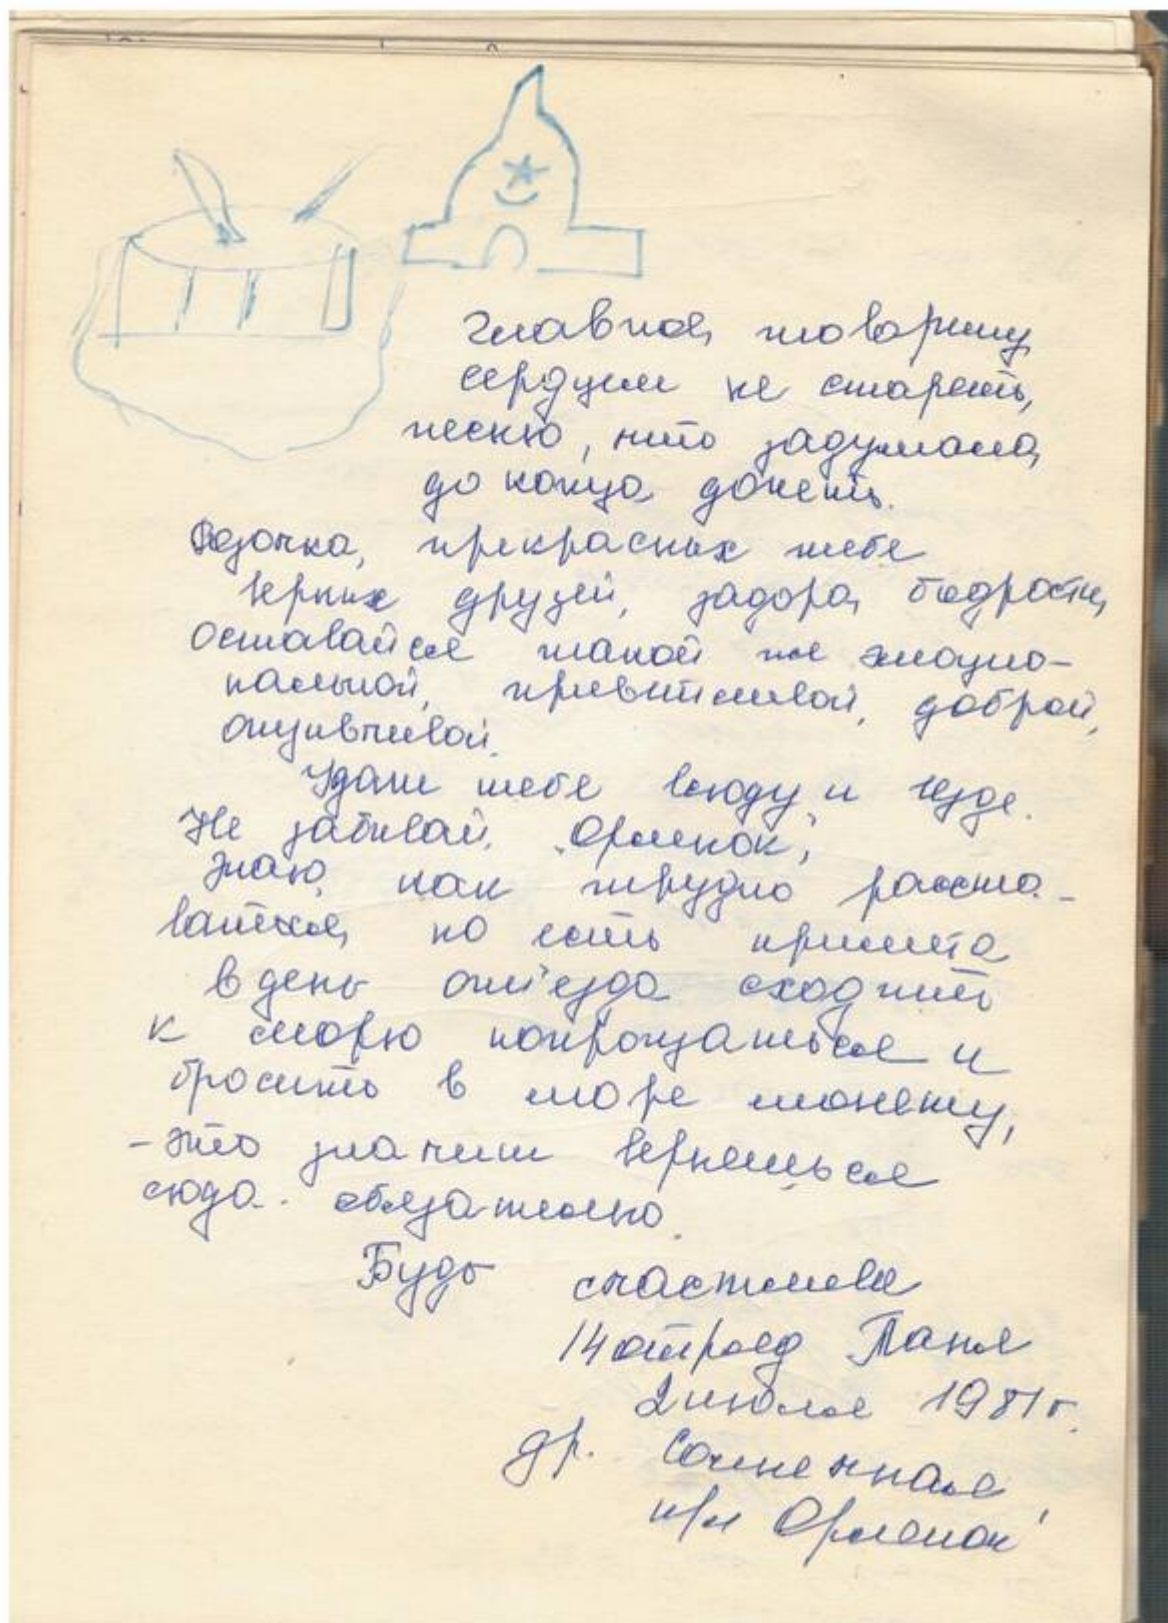 главное, товарищ
сердцем не стареть,
песню, что задумана,
до конца допеть.
прекрасных тебе
верных друзей, задора, бодрости,
Оставайся такой же эмоцио-
нальной, приветливой, доброй,
отзывчивой.
Удачи тебе всюду и везде.
Не забывай "Орленок",
Знаю, как трудно расста-
ваться, но есть примета
в день отъезда сходить
к морю попрощаться и
бросить в море монету,
- это значит вернешься
сюда обязательно.
Будь счастлива
14 отряд Таня
2 июля 1981г.
др. Солнечная
"Орленок"